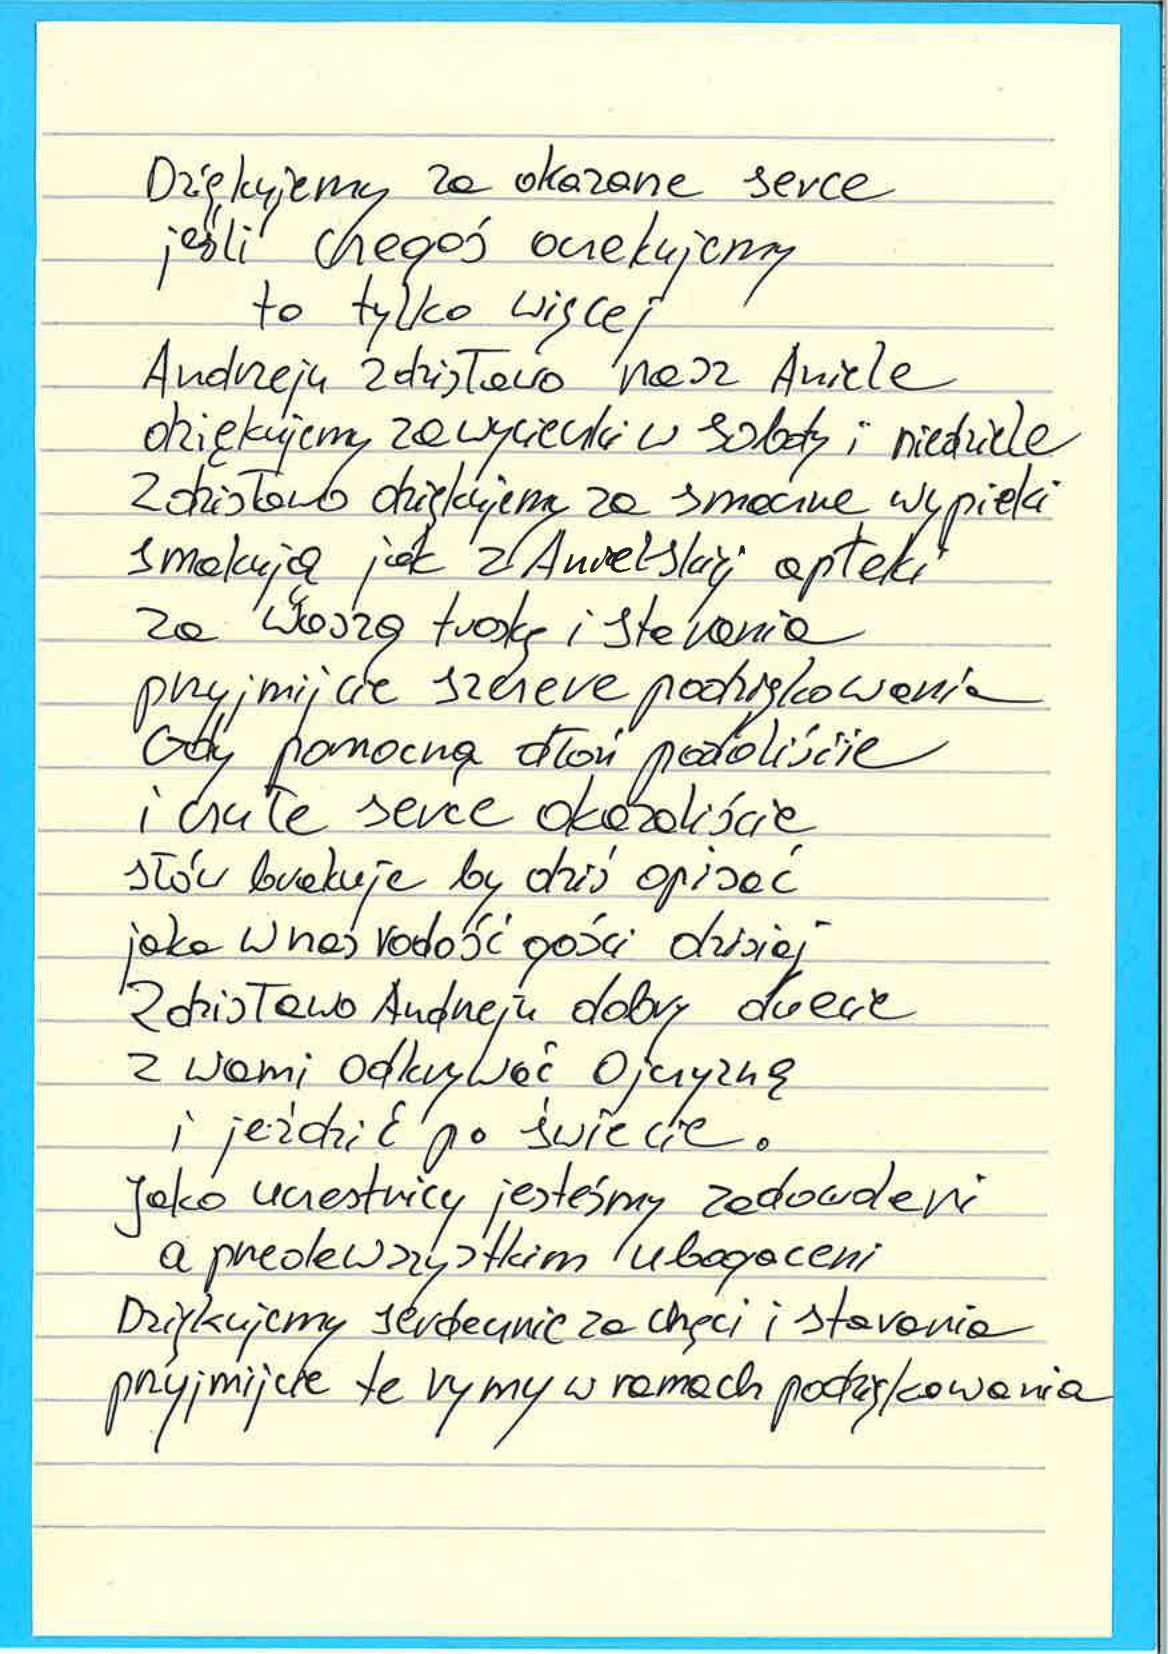 Dziękujemy za okazane serce
jeśli czegoś oczekujemy
to tylko więcej
Andrzeju Zdzisławo nasz Aniele
dziękujemy za wycieczki w soboty i niedziele
Zdzisławo dziękujemy za smaczne wypieki
smakują jak z Anielskiej apteki
za Waszą troskę i starania
przyjmijcie szczere podziękowania
Gdy pomocną dłoń podaliście
i czułe serce okazaliście
słów brakuje by dziś opisać
jaka w nas radość gości dzisiej
Zdzisławo Andrzeju dobry duecie
z wami odkrywać Ojczyznę
i jeździć po świecie.
Jako uczestnicy jesteśmy zadowoleni
a przedewszystkim ubogaceni
Dziękujemy serdecznie za chęci i starania
przyjmijcie te rymy w ramach podziękowania